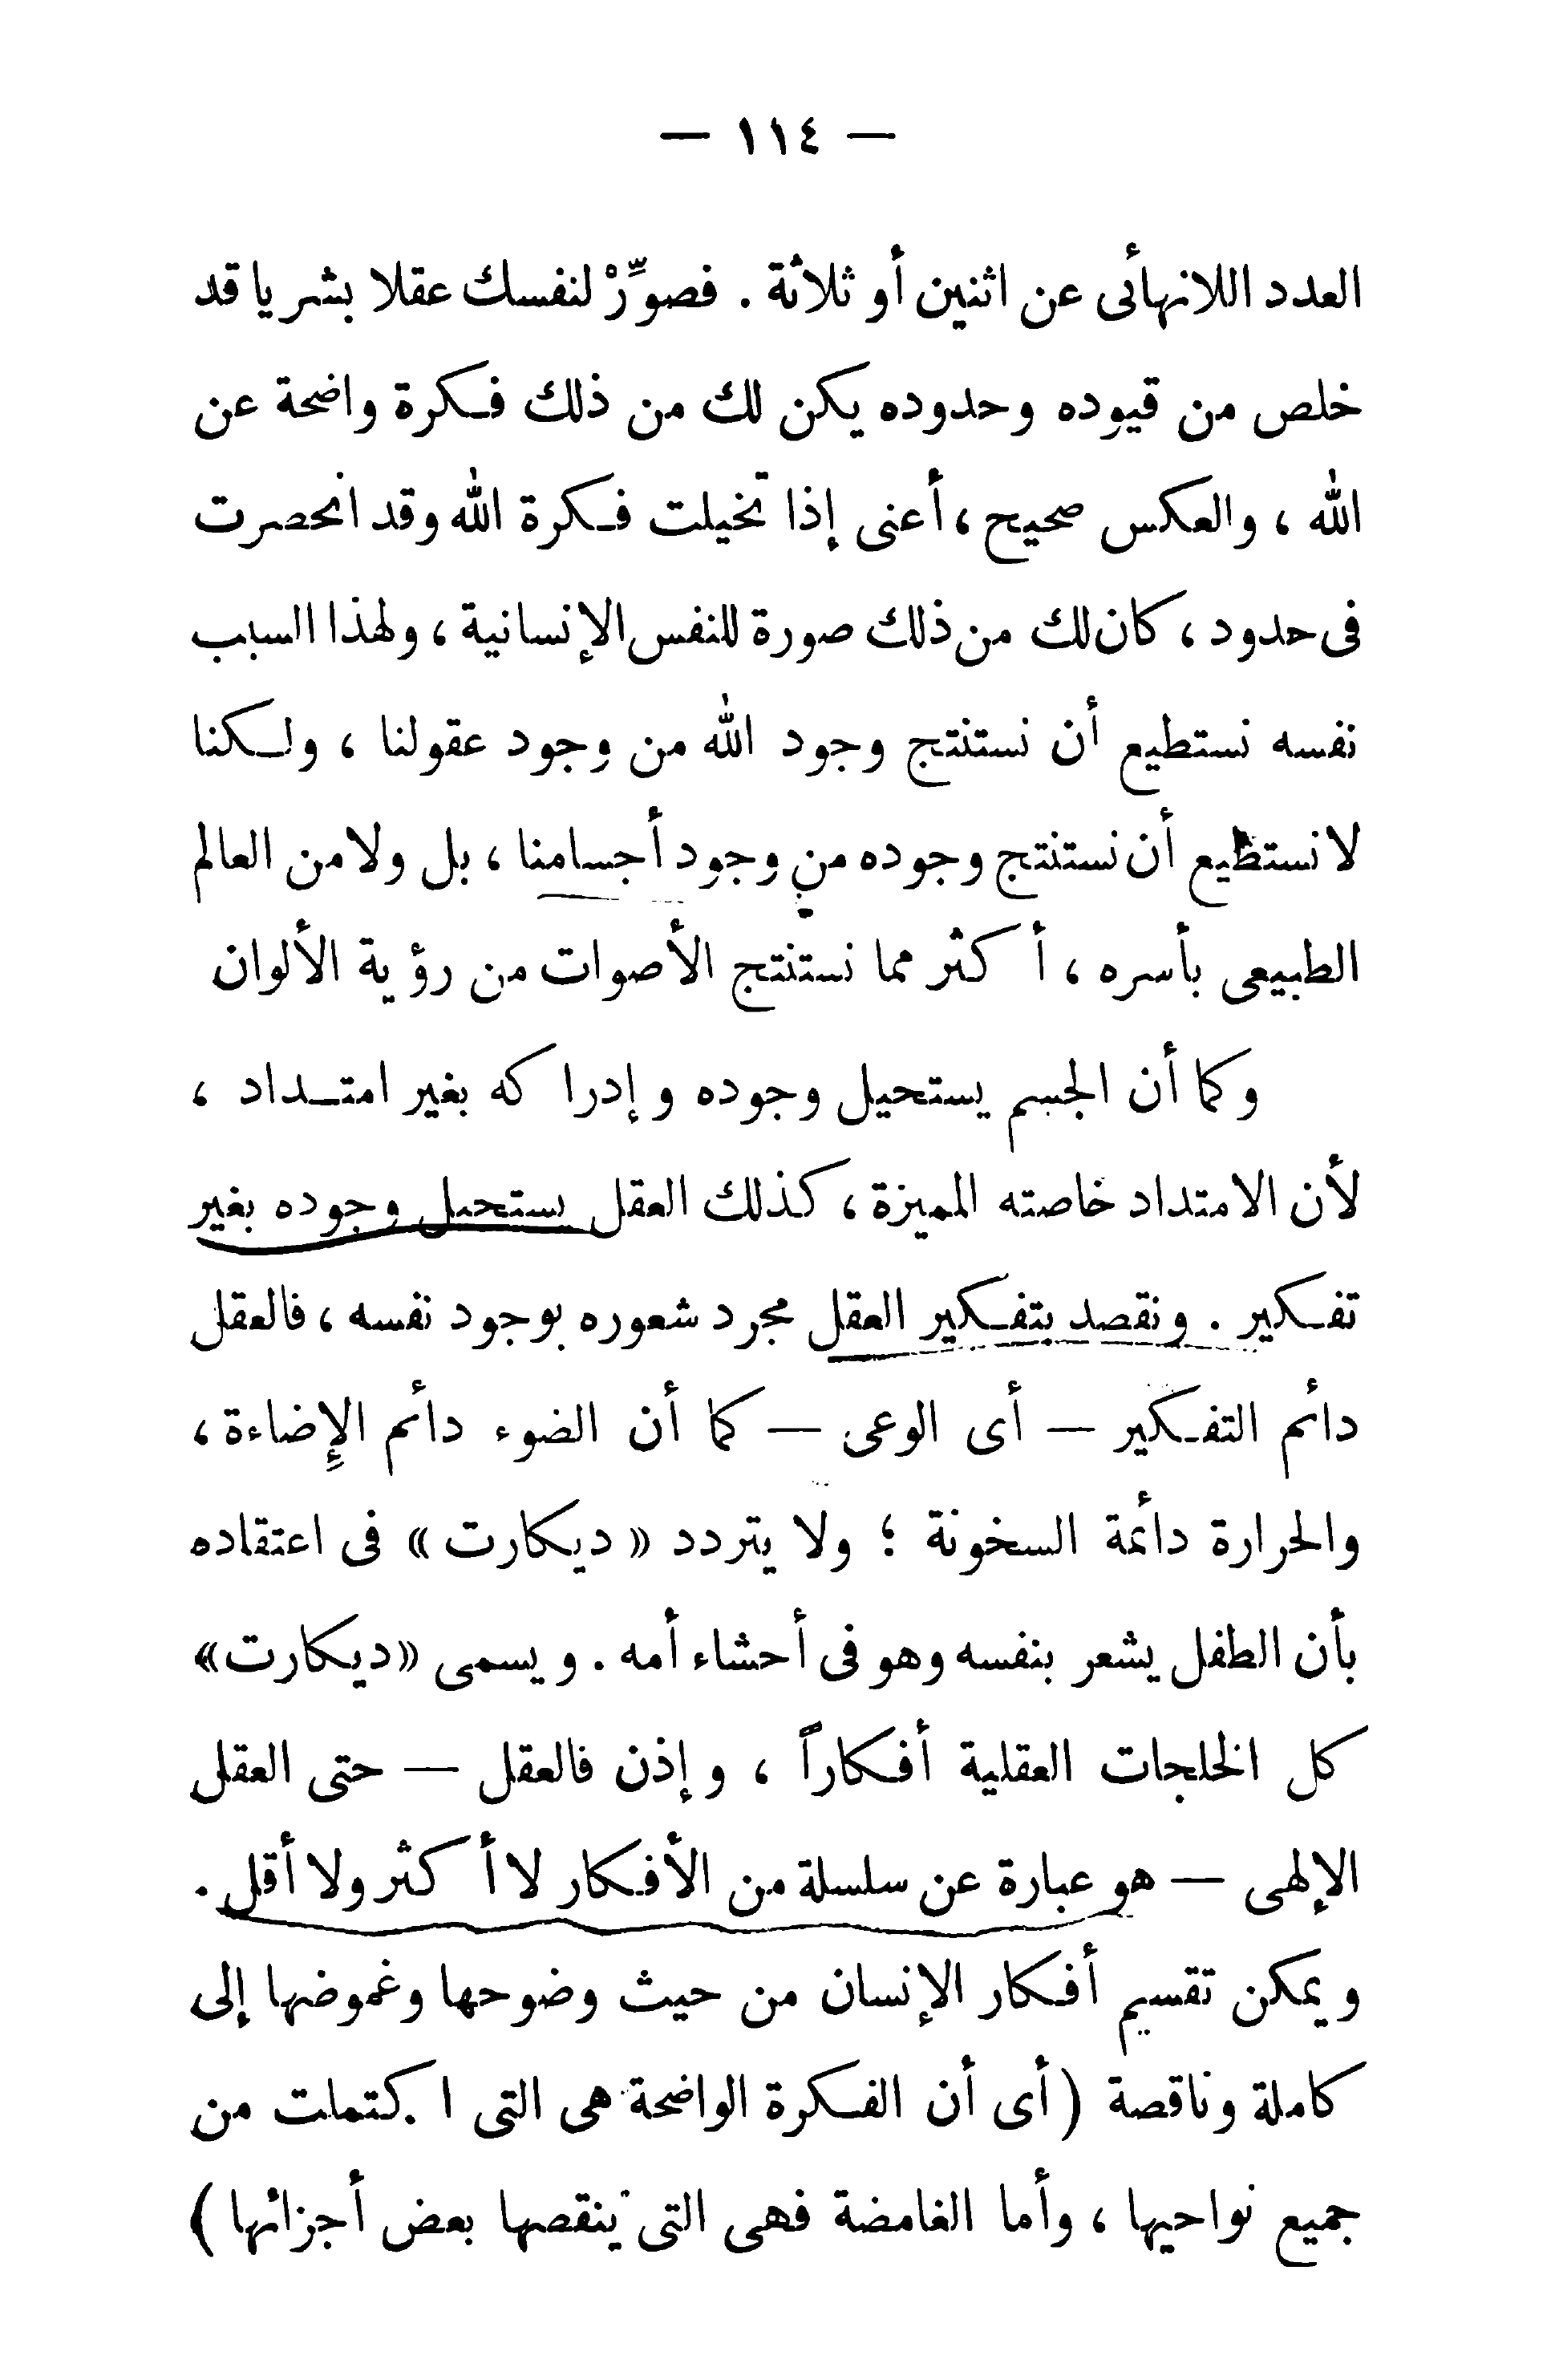 — ١١٤ —
العدد اللانهائى عن اثنين أو ثلاثة . فصوِّرْ لنفسك عقلا بشريا قد
خلص من قيوده وحدوده يكن لك من ذلك فكرة واضحة عن
الله ، والعكس صحيح ، أعنى إذا تخيلت فكرة الله وقد انحصرت
فى حدود ، كان لك من ذلك صورة للنفس الإنسانية ، ولهذا السبب
نفسه نستطيع أن نستنتج وجود الله من وجود عقولنا ، ولكنا
لا نستطيع أن نستنتج وجوده من وجود أجسامنا ، بل ولا من العالم
الطبيعى بأسره ، أكثر مما نستنتج الأصوات من رؤية الألوان
وكما أن الجسم يستحيل وجوده وإدراكه بغير امتداد ،
لأن الامتداد خاصته المميزة ، كذلك العقل يستحيل وجوده بغير
تفكير . ونقصد بتفكير العقل مجرد شعوره بوجود نفسه ، فالعقل
دائم التفكير — أى الوعى — كما أن الضوء دائم الإضاءة ،
والحرارة دائمة السخونة ؛ ولا يتردد « ديكارت » فى اعتقاده
بأن الطفل يشعر بنفسه وهو فى أحشاء أمه . ويسمى « ديكارت »
كل الخلجات العقلية أفكاراً ، وإذن فالعقل — حتى العقل
الإلهى — هو عبارة عن سلسلة من الأفكار لا أكثر ولا أقل .
ويمكن تقسيم أفكار الإنسان من حيث وضوحها وغموضها إلى
كاملة وناقصة ( أى أن الفكرة الواضحة هى التى اكتملت من
جميع نواحيها ، وأما الغامضة فهى التى ينقصها بعض أجزائها )